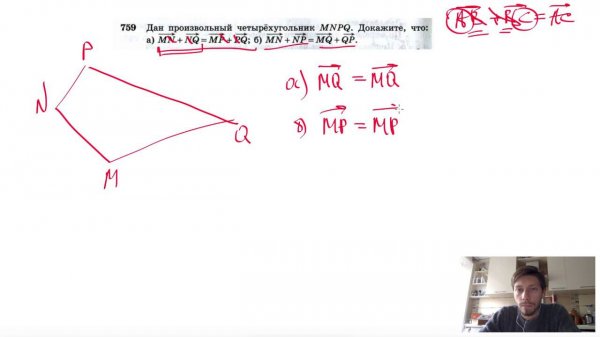 759 Дан произвольный четырёхугольник MNPQ. Докажите, что:
а) MN + NQ = MP + PQ; б) MN + NP = MQ + QP.
AB + BC = AC
P
N
Q
M
а) MQ = MQ
б) MP = MP